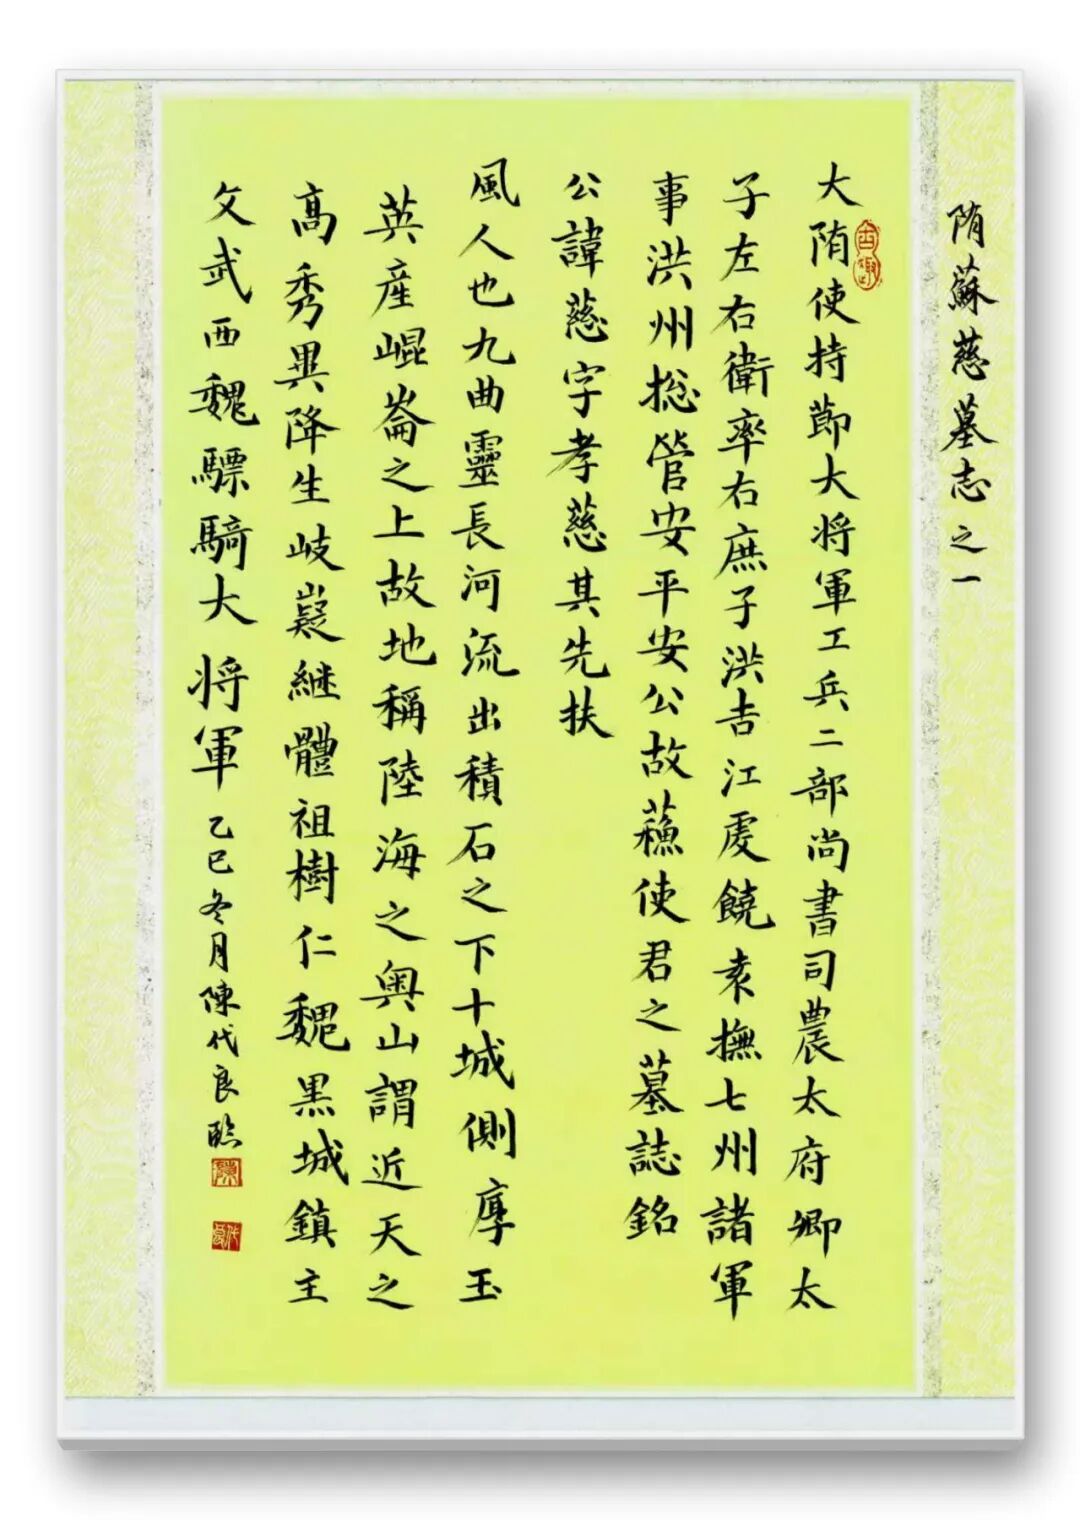 隋蘇慈墓志之一
大隋使持節大將軍工兵二部尚書司農太府卿太
子左右衛率右庶子洪吉江虔饒袁撫七州諸軍
事洪州捴管安平安公故蘓使君之墓誌銘
公諱慈字孝慈其先扶
風人也九曲靈長河流出積石之下十城側厚玉
英産崐崙之上故地稱陸海之奥山謂近天之
髙秀異降生岐嶷継體祖樹仁魏黒城鎮主
父武西魏驃騎大將軍
乙巳冬月陳代良臨
古趣
陳
代良